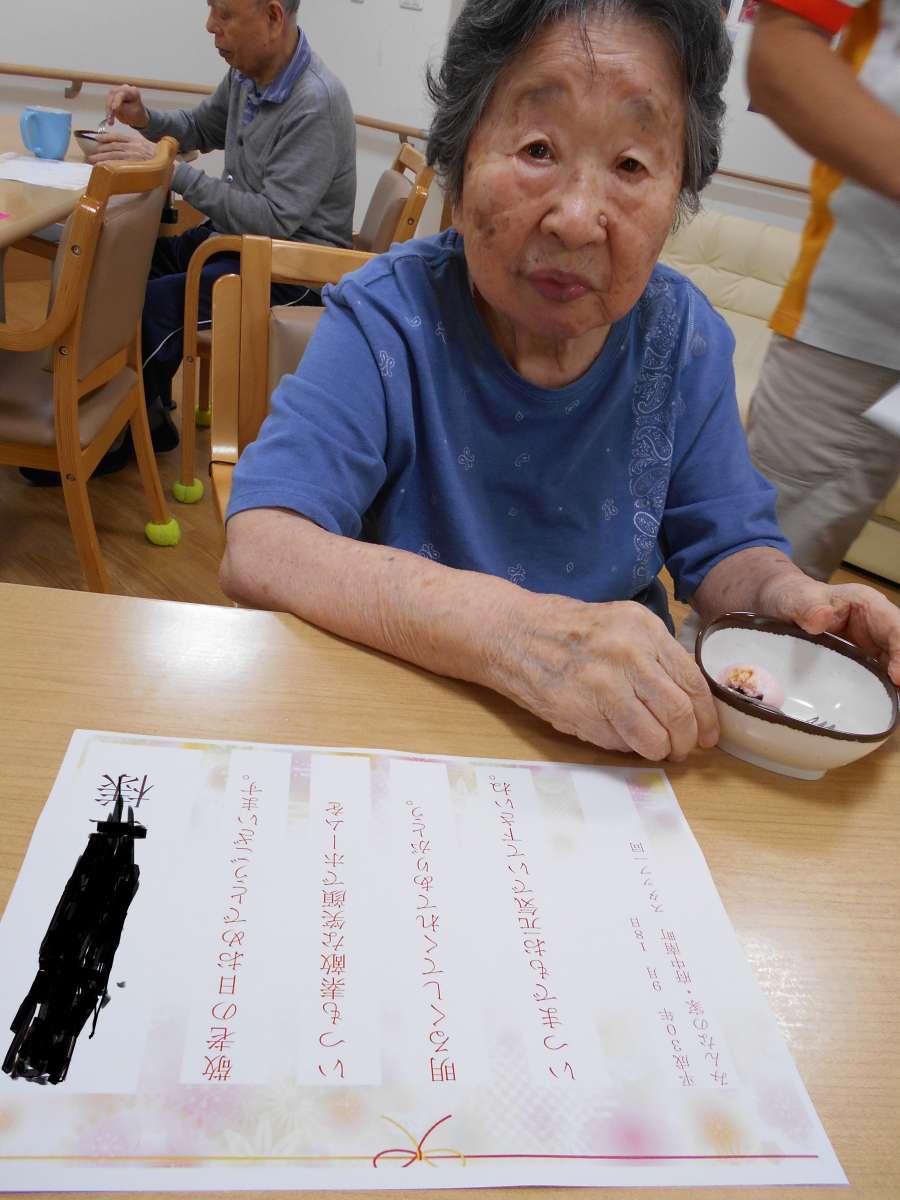 様
敬老の日おめでとうございます。
いつも素敵な笑顔でホームを
明るくしてくれてありがとう。
いつまでもお元気でいて下さいね。
平成30年 9月 18日
みんなの家・府中南町 スタッフ一同